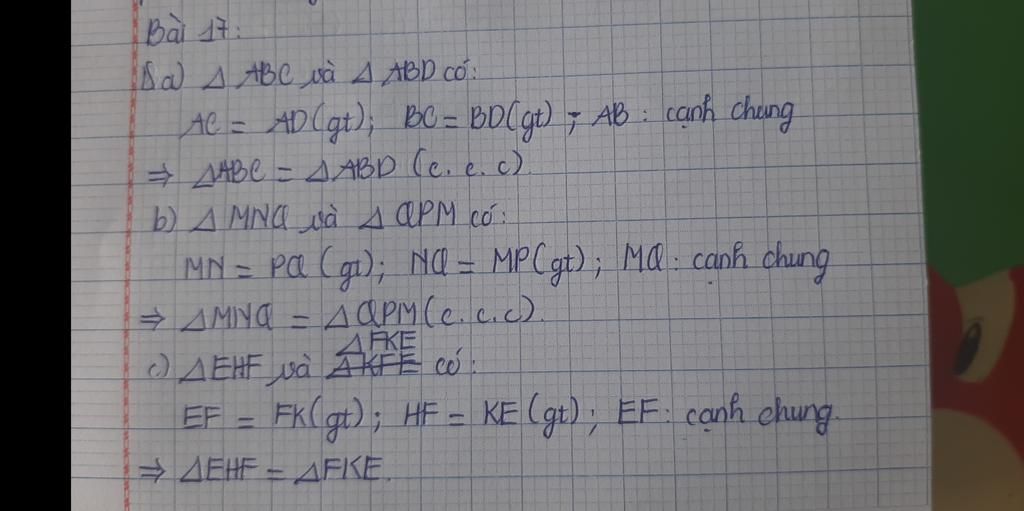 Bài 17:
a) Δ ABC và Δ ABD có:
AC = AD (gt); BC = BD (gt); AB: cạnh chung
⇒ ΔABC = ΔABD (c.c.c)
b) Δ MNQ và Δ QPM có:
MN = PQ (gt); NQ = MP (gt); MQ: cạnh chung
⇒ ΔMNQ = ΔQPM (c.c.c)
ΔFKE
c) ΔEHF và ΔKFE có:
EF = FK (gt); HF = KE (gt); EF: cạnh chung.
⇒ ΔEHF = ΔFKE.